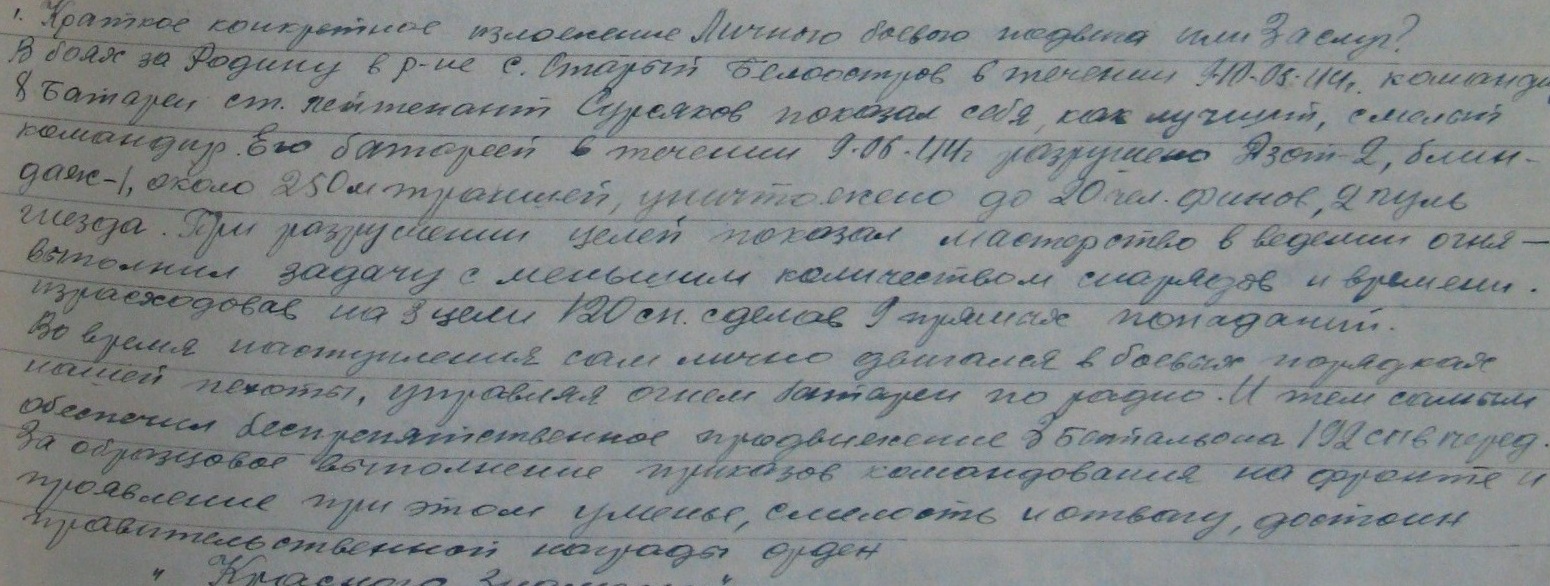 1. Краткое конкретное изложение Личного боевого подвига или Заслуг?
В боях за Родину в р-не с. Старый Белоостров в течении 9-10.06.44г. команди
8 Батареи ст. лейтенант Сурсяков показал себя, как лучший, смелый
командир. Его батареей в течении 9.06.44г разрушено Дзот-2, блин-
даж-1, около 250м траншей, уничтожено до 20 чел. финов, 2 пуль
гнезда. При разрушении целей показал мастерство в ведении огня —
выполнил задачу с меньшим количеством снарядов и времени.
израсходовав на 3 цели 120 сн. сделав 9 прямых попаданий.
Во время наступления сам лично двигался в боевых порядках
нашей пехоты, управляя огнем батареи по радио. И тем самым
обеспечил беспрепятственное продвижение 3 Батальона 192 сп вперед.
За образцовое выполнение приказов командования на фронте и
проявление при этом уменье, смелость и отвагу, достоин
правительственной награды орден
" Красного Знамени "